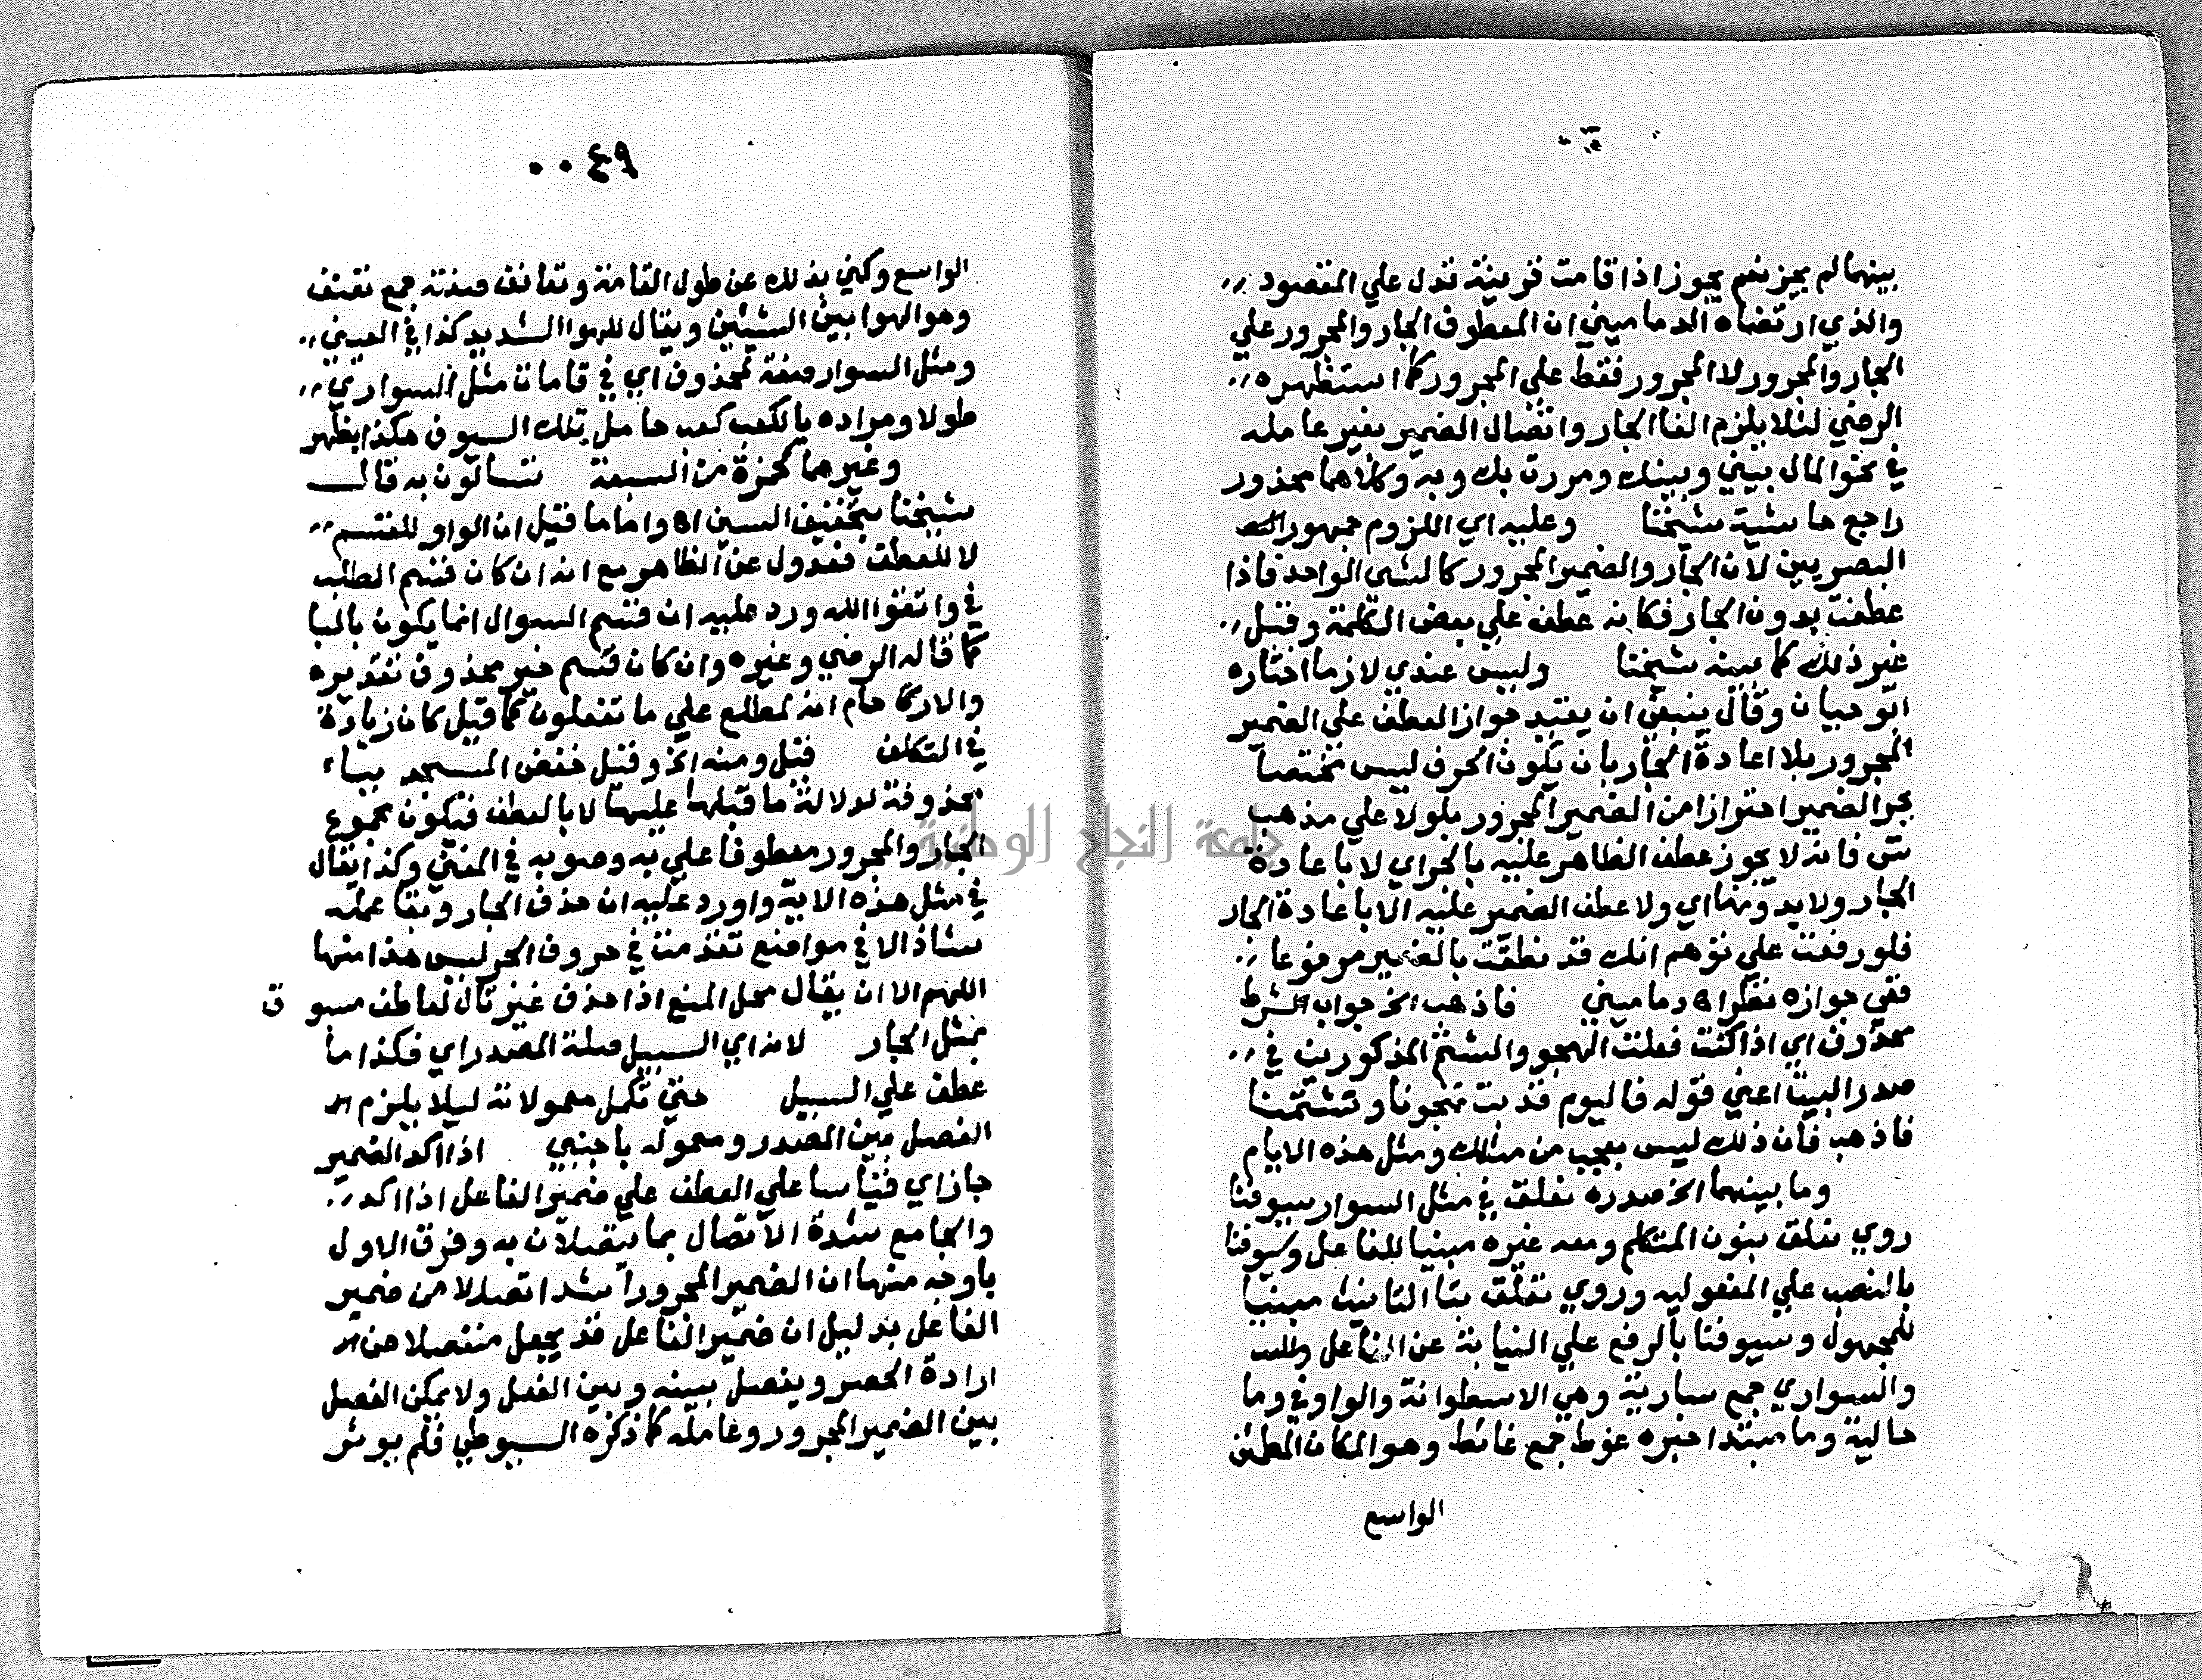 بينهما لم يجز نعم يجوز اذا قامت قرينة تدل علي المقصود
والذي ارتضاه الدماميني ان المعطوف الجار والمجرور علي
الجار والمجرور لا المجرور فقط علي المجرور كما استظهره
الرضي لئلا يلزم الغا الجار واتصال الضمير بغير عامله
في نحو المال بيني وبينك ومررت بك وبه وكلاهما محذور
راجع حاشية شيخنا وعليه اي اللزوم جمهور
البصريين لان الجار والضمير المجرور كالشي الواحد فاذا
عطفت بدون الجار فكانه عطف علي بعض الكلمة وقيل
غير ذلك كما بينه شيخنا وليس عندي لازما اختاره
ابو حيان وقال ينبغي ان يقيد جواز العطف علي الضمير
المجرور بلا اعادة الجار بان يكون الحرف ليس مختصا
بجر الضمير احترازا من الضمير المجرور بلولا علي مذهب
س فانه لا يجوز عطف الظاهر عليه بالجر اي لا باعادة
الجار ولا بدونها اي ولا عطف الضمير عليه الا باعادة الجار
فلو رفعت علي توهم انك قد نطقت بالضمير مرفوعا
ففي جوازه نظر اه دماميني فاذهب الخ جواب الشرط
محذوف اي اذا كنت فعلت الهجو والشتم المذكورين في
صدر البيت اعني قوله فاليوم قد بت تهجونا وتشتمنا
فاذهب فان ذلك ليس بعجب من مثلك ومثل هذه الايام
وما بينهما الخ صدره نعلق في مثل السوار سيوفنا
روي نعلق بنون المتكلم ومعه غيره مبنيا للفاعل وسيوفنا
بالنصب علي المفعوليه وروي تعلق بتا التانيث مبنيا
للمجهول وسيوفنا بالرفع علي النيابة عن الفاعل
والسواري جمع سارية وهي الاسطوانة والواو في وما
حالية وما مبتدا خبره غوط جمع غائط وهو المكان المطمئن
الواسع
٠٠٤٩
الواسع وكني بذلك عن طول القامة ونفانف صفته جمع نفنف
وهو الهوا بين الشيئين ويقال للهوا الشديد كذا في العيني
ومثل السوار صفة لمحذوف اي في قامات مثل السواري
طولا ومراده بالكعب كعب حامل تلك السيوف هكذا يظهر
وغيرهما كحمزة من السبعة تسالون به قال
شيخنا بتخفيف السين اه واما ما قيل ان الواو للقسم
لا للعطف فعدول عن الظاهر مع انه ان كان قسم الطلب
في واتقوا الله ورد عليه ان قسم السوال انما يكون بالبا
كما قاله الرضي وغيره وان كان قسم خبر محذوف تقديره
والارحام انه لمطلع علي ما تفعلون كما قيل كان زيادة
في التكلف قيل ومنه الخ وقيل خفض المسجد بباء
محذوفة لدلالة ما قبلها عليها لا بالعطف فيكون مجموع
الجار والمجرور معطوفا علي به وصوبه في المغني وكذا يقال
في مثل هذه الاية واورد عليه ان حذف الجار وبقا عمله
شاذ الا في مواضع تقدمت في حروف الجر ليس هذا منها
اللهم الا ان يقال محل المنع اذا حذف غير تال لعاطف مسبوق
بمثل الجار لانه اي السبيل صلة المصدر اي فكذا ما
عطف علي السبيل حتي تكمل معمولاته ليلا يلزم
الفصل بين المصدر ومعموله باجنبي اذا اكد الضمير
جاز اي قياسا علي العطف علي ضمير الفاعل اذا اكد
والجامع شدة الاتصال بما يتصلان به وفرق الاول
باوجه منها ان الضمير المجرور اشد اتصالا من ضمير
الفاعل بدليل ان ضمير الفاعل قد يجعل منفصلا عن
ارادة الحصر ويفصل بينه وبين الفعل ولا يمكن الفصل
بين الضمير المجرور وعامله كما ذكره السيوطي فلم يوثر
جامعة النجاح الوطنية